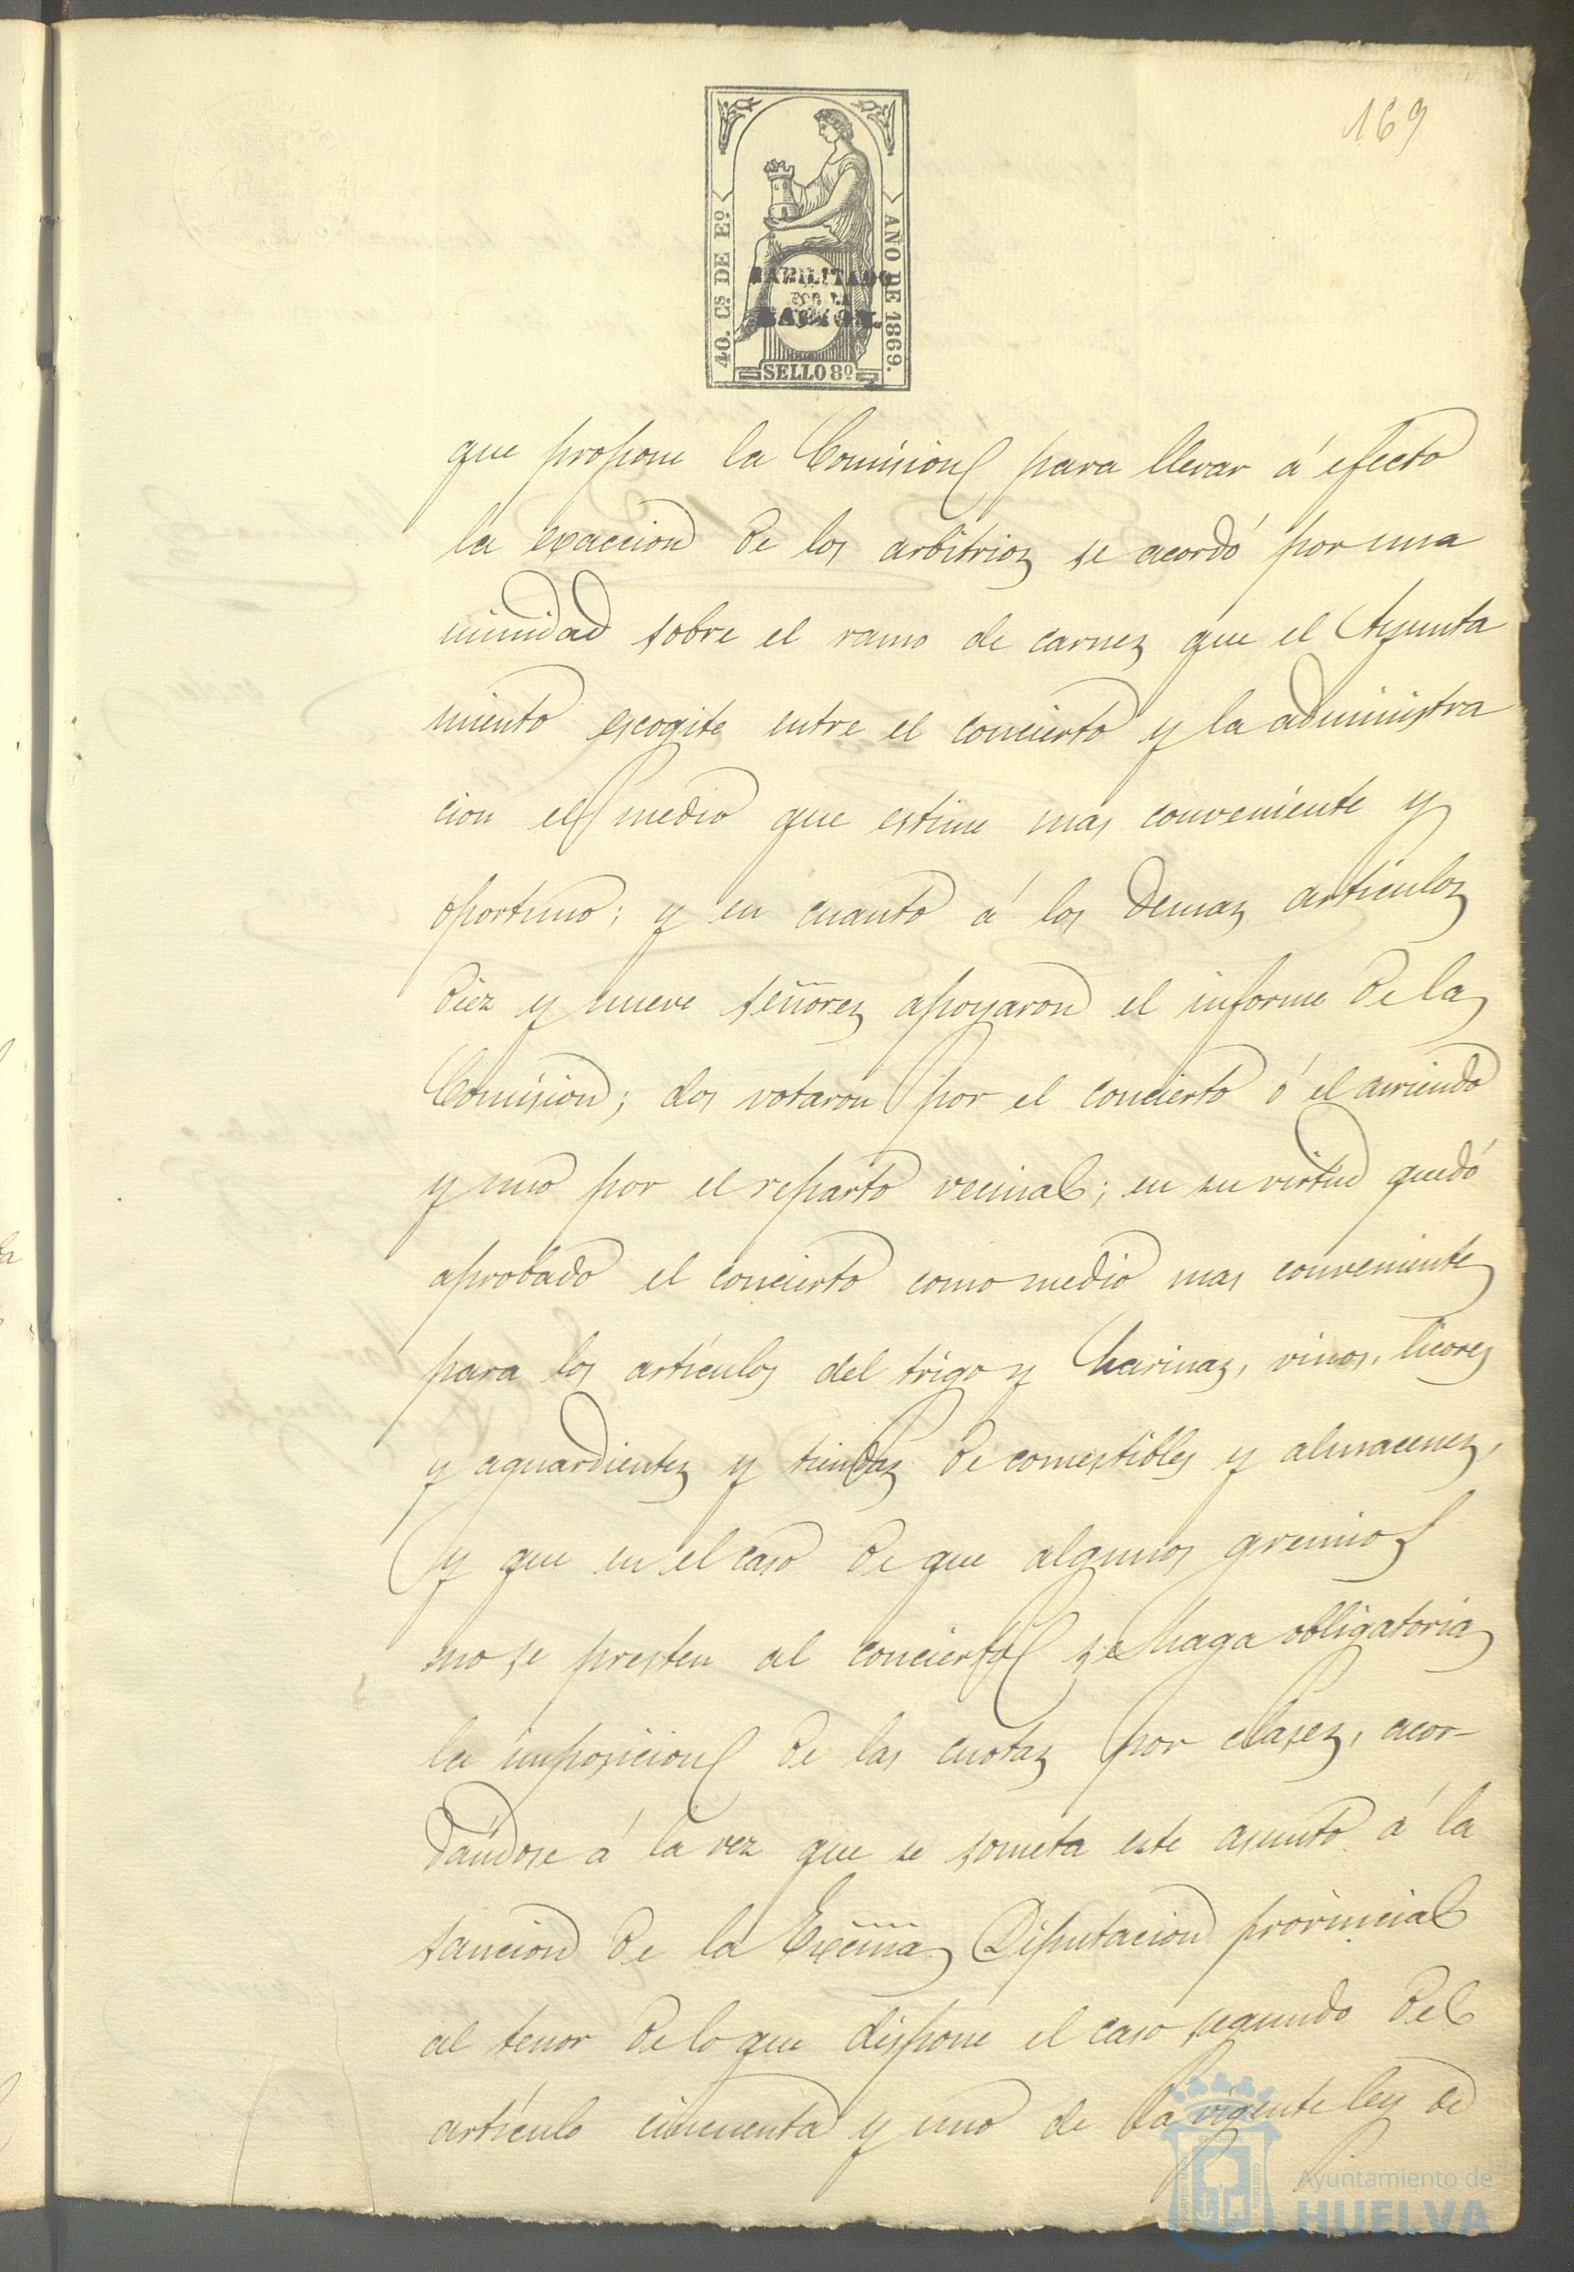 169
40. Cs DE Eº
AÑO DE 1869.
HABILITADO
POR LA
NACION.
SELLO 8º
que propone la Comision para llevar á efecto
la exaccion de los arbitrios se acordó por una
nimidad sobre el ramo de carnes que el Ayunta
miento escogite entre el concierto y la administra
cion el medio que estime mas conveniente y
oportuno; y en cuanto á los demas articulos
diez y nueve señores apoyaron el informe de la
Comision; dos votaron por el concierto ó el arriendo
y uno por el reparto vecinal; en su virtud quedó
aprobado el concierto como medio mas conveniente
para los artículos del trigo y harinas, vinos, licores
y aguardientes y tiendas de comestibles y almacenes,
y que en el caso de que algunos gremios
no se presten al concierto se haga obligatoria
la imposicion de las cuotas por clases, acor-
dándose á la vez que se someta este asunto á la
sancion de la Excma Diputacion provincial
al tenor de lo que dispone el caso segundo del
artículo cincuenta y uno de la vigente ley de
Ayuntamiento de
HUELVA